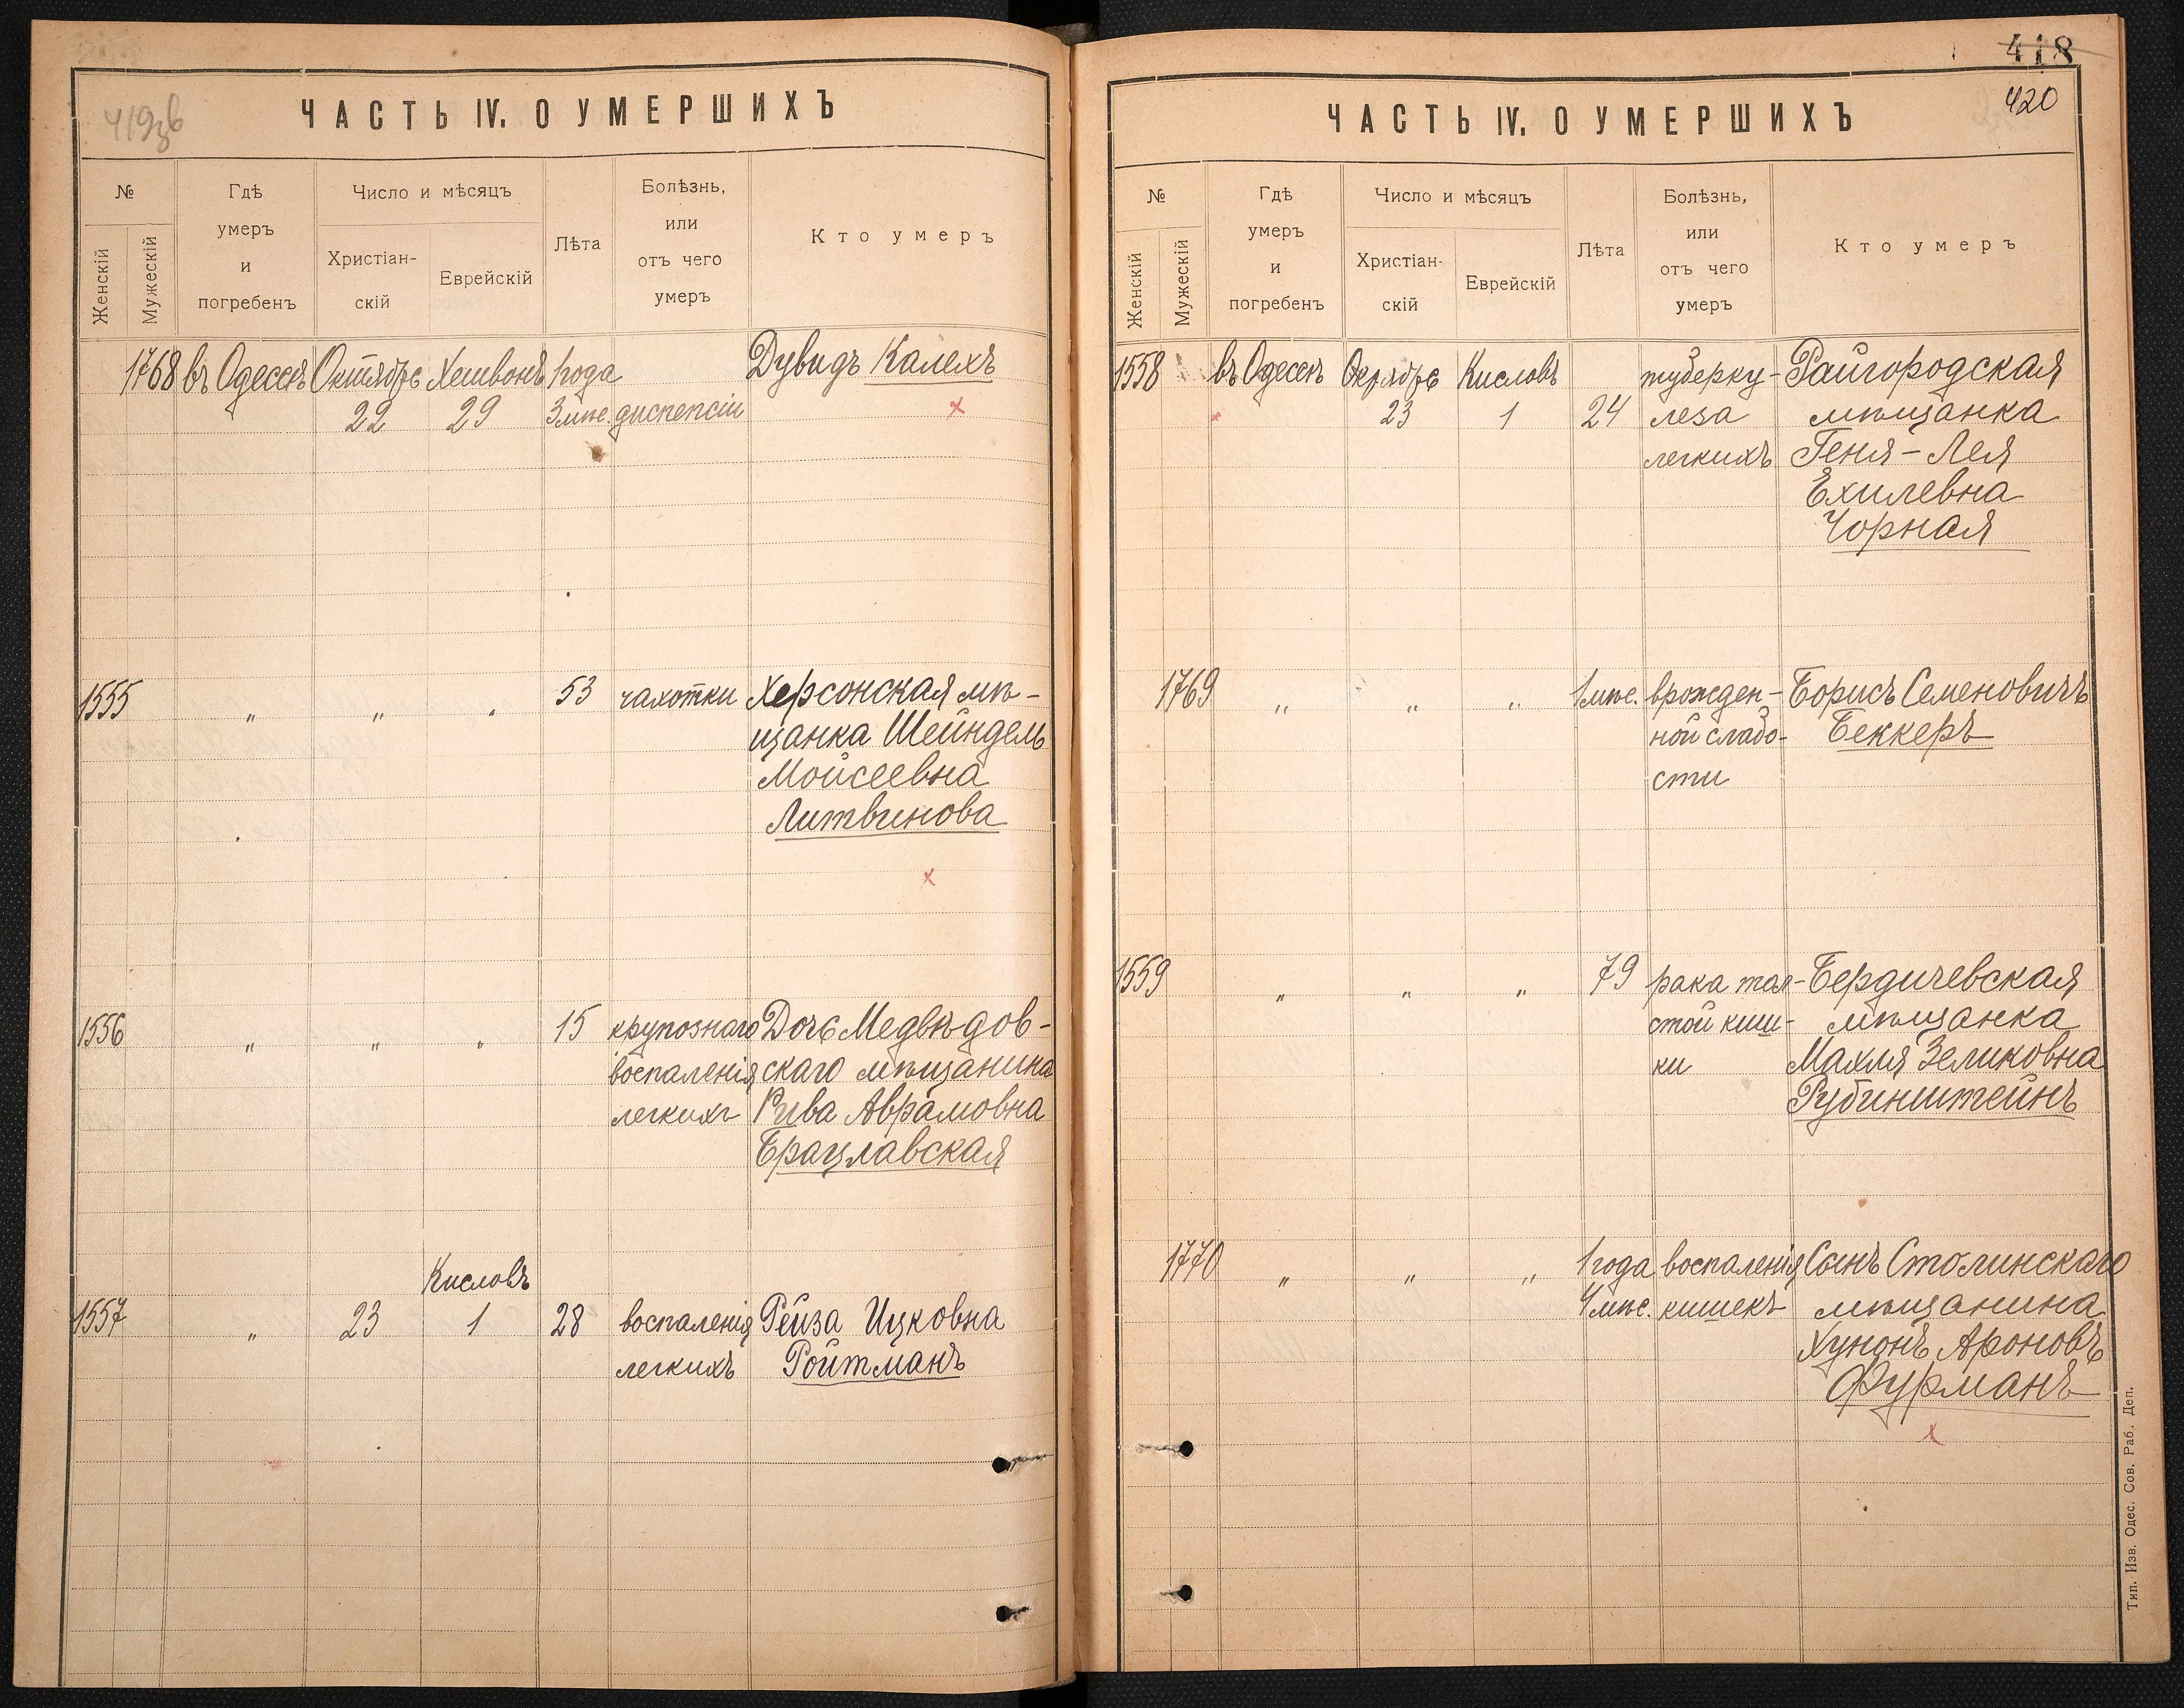 419зв
ЧАСТЬ IV. О УМЕРШИХЪ
№
Женскій
Мужескій
Гдѣ
умеръ
и
погребенъ
Число и мѣсяцъ
Христіан-
скій
Еврейскій
Лѣта
Болѣзнь,
или
отъ чего
умеръ
Кто умеръ
1768 въ Одессѣ Октября Хешвонъ 1 года Дувидъ Калехъ
22 29 3 мѣс. диспепсіи х
1555 " " " 53 чахотки Херсонская мѣ-
щанка Шейндель
Мойсеевна
Литвинова
х
1556 " " " 15 крупознаго Дочь Медвѣдов-
воспаленія скаго мѣщанина
легкихъ Рива Аврамовна
Брацлавская
Кисловъ
1557 " 23 1 28 воспаленія Рейза Ицковна
легкихъ Ройтманъ
418
420
ЧАСТЬ IV. О УМЕРШИХЪ
№
Женскій
Мужескій
Гдѣ
умеръ
и
погребенъ
Число и мѣсяцъ
Христіан-
скій
Еврейскій
Лѣта
Болѣзнь,
или
отъ чего
умеръ
Кто умеръ
1558 въ Одессѣ Октября Кисловъ туберку- Райгородская
23 1 24 леза мѣщанка
легкихъ Геня-Лея
Ехилевна
Чорная
1769 " " " 1 мѣс. врожден- Борисъ Семеновичъ
ной слабо- Беккеръ
сти
1559 " " " 79 рака тол- Бердичевская
стой киш- мѣщанка
ки Махля Зеликовна
Рубинштейнъ
1770 " " " 1 года воспаленія Сынъ Столинскаго
4 мѣс. кишекъ мѣщанина
Хунонъ Ароновъ
Фурманъ
х
Тип. Изв. Одес. Сов. Раб. Деп.